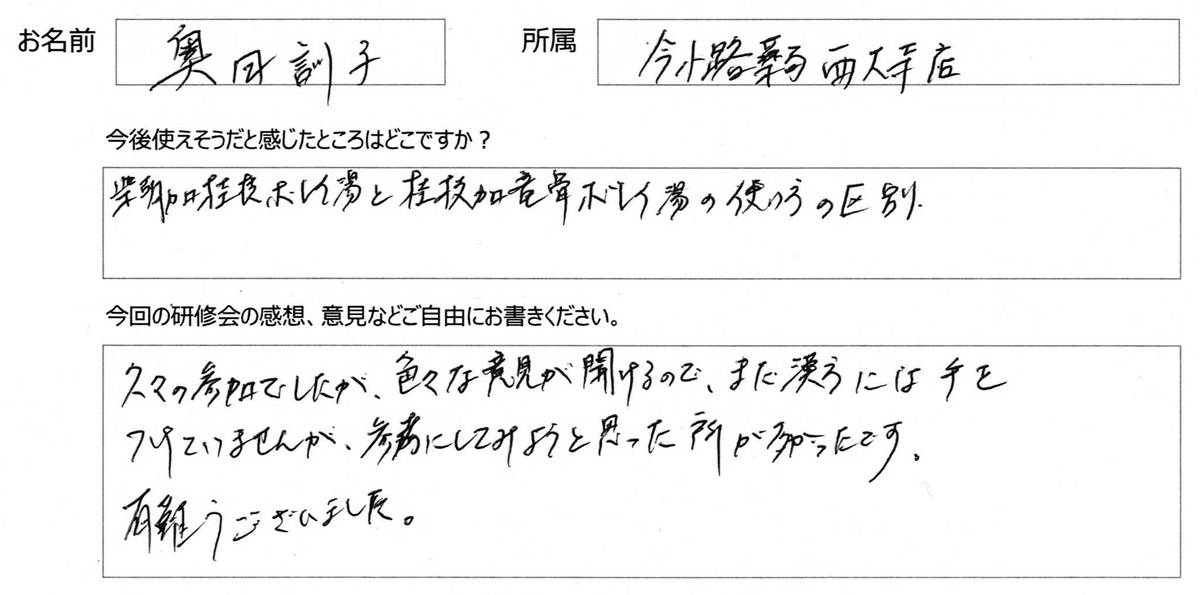 お名前 奥田訓子 所属 今小路薬局 西大寺店
今後使えそうだと感じたところはどこですか？
柴胡加桂枝ボレイ湯と桂枝加竜骨ボレイ湯の使い方の区別.
今回の研修会の感想、意見などご自由にお書きください。
久々の参加でしたが、色々な意見が聞けるので、まだ漢方には手を
つけていませんが、参考にしてみようと思った所が多かったです。
有難うございました。